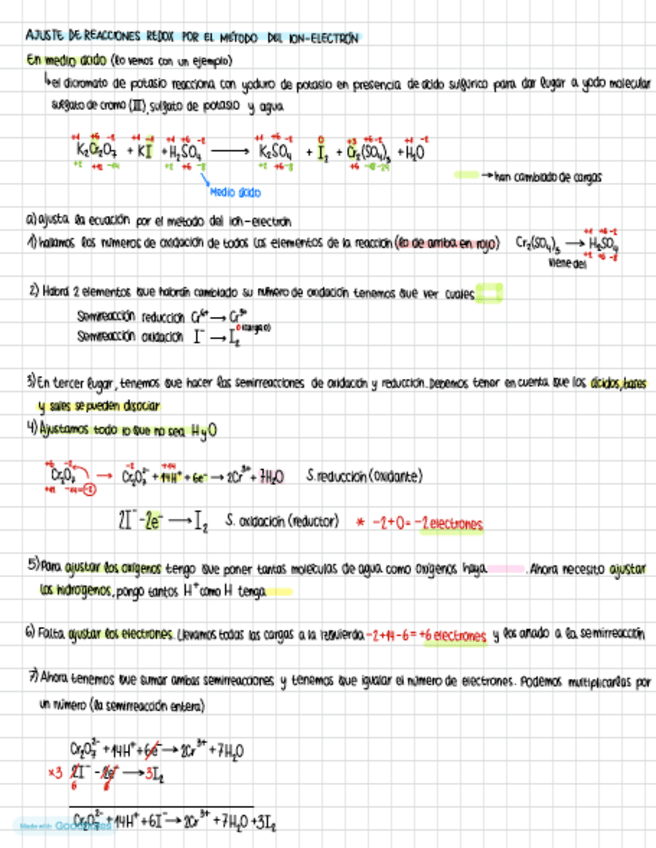 AJUSTE DE REACCIONES REDOX POR EL MÉTODO DEL ION-ELECTRÓN
En medio ácido (lo vemos con un ejemplo)
↳el dicromato de potasio reacciona con yoduro de potasio en presencia de ácido sulfúrico para dar lugar a yodo molecular
sulfato de cromo (III), sulfato de potasio y agua
+1 +6 -2 +1 -1 +1 +6 -2 +1 +6 -2 0 +3 +6 -2 +1 -2
K₂Cr₂O₇ + KI + H₂SO₄ ⟶ K₂SO₄ + I₂ + Cr₂(SO₄)₃ + H₂O
→han cambiado de cargas
Medio ácido
a) ajusta la ecuación por el metodo del ion-electron
1) hallamos los números de oxidación de todos los elementos de la reacción (lo de arriba en rojo) Cr₂(SO₄)₃ → H₂SO₄
viene del
2) Habrá 2 elementos que habrán cambiado su número de oxidación tenemos que ver cuales
Semireacción reducción Cr⁶⁺ → Cr³⁺
Semireacción oxidación I⁻ → I₂ 0(carga 0)
3) En tercer lugar, tenemos que hacer las semirreacciones de oxidación y reducción. Debemos tener en cuenta que los ácidos, bases
y sales se pueden disociar
4) Ajustamos todo lo que no sea H y O
Cr₂O₇ → Cr₂O₇²⁻ + 14H⁺ + 6e⁻ → 2Cr³⁺ + 7H₂O S. reducción (oxidante)
2I⁻ - 2e⁻ ⟶ I₂ S. oxidación (reductor) * -2+0= -2 electrones
5) Para ajustar los oxígenos tengo que poner tantas moleculas de agua como oxígenos haya. Ahora necesito ajustar
los hidrogenos, pongo tantos H⁺ como H tenga
6) Falta ajustar los electrones. Llevamos todas las cargas a la izquierda -2+14-6=+6 electrones y los añado a la semirreacción
7) Ahora tenemos que sumar ambas semirreacciones y tenemos que igualar el número de electrones. Podemos multiplicarlas por
un número (la semirreacción entera)
Cr₂O₇²⁻ + 14H⁺ + 6e⁻ → 2Cr³⁺ + 7H₂O
x3 2I⁻ - 2e⁻ ⟶ 3I₂
6 6
Cr₂O₇²⁻ + 14H⁺ + 6I⁻ → 2Cr³⁺ + 7H₂O + 3I₂
Made with Goodnotes